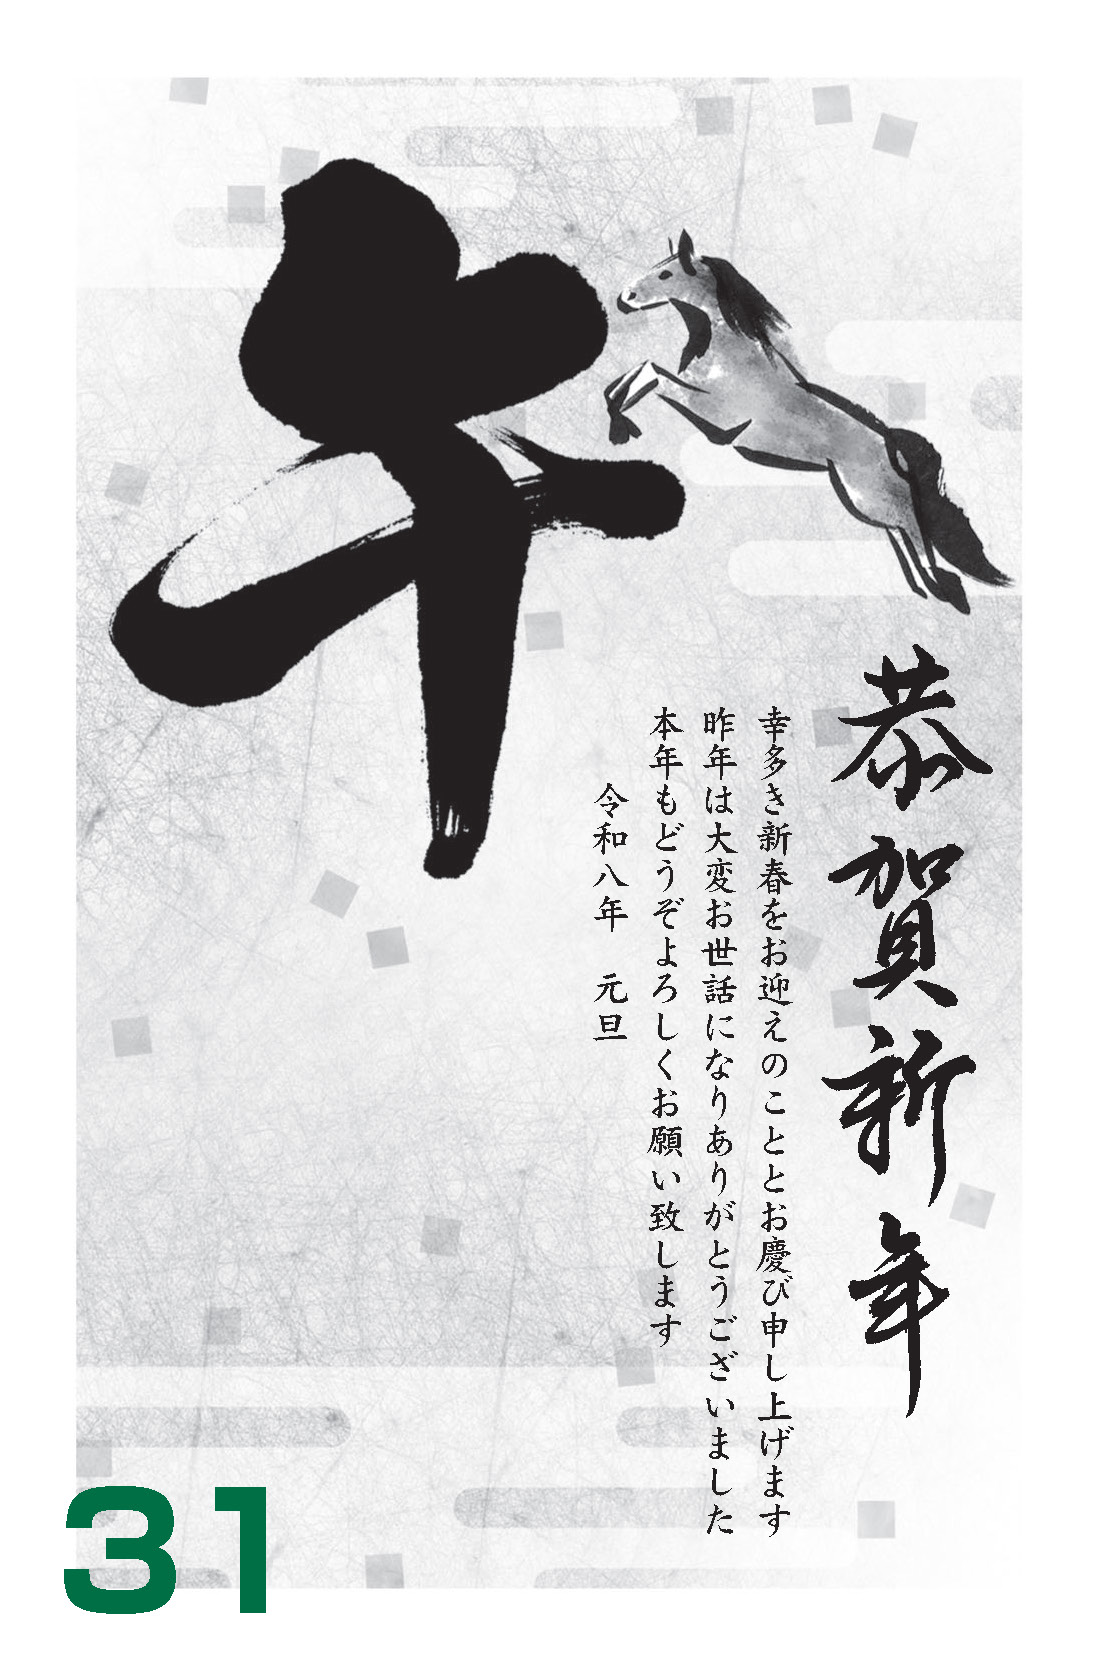 午
恭賀新年
幸多き新春をお迎えのこととお慶び申し上げます
昨年は大変お世話になりありがとうございました
本年もどうぞよろしくお願い致します
令和八年　元旦
31